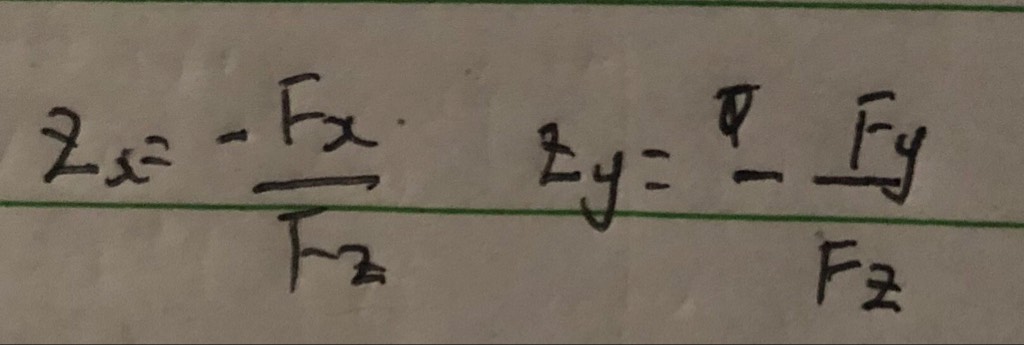 Zx = -Fx/Fz Zy = - Fy/Fz